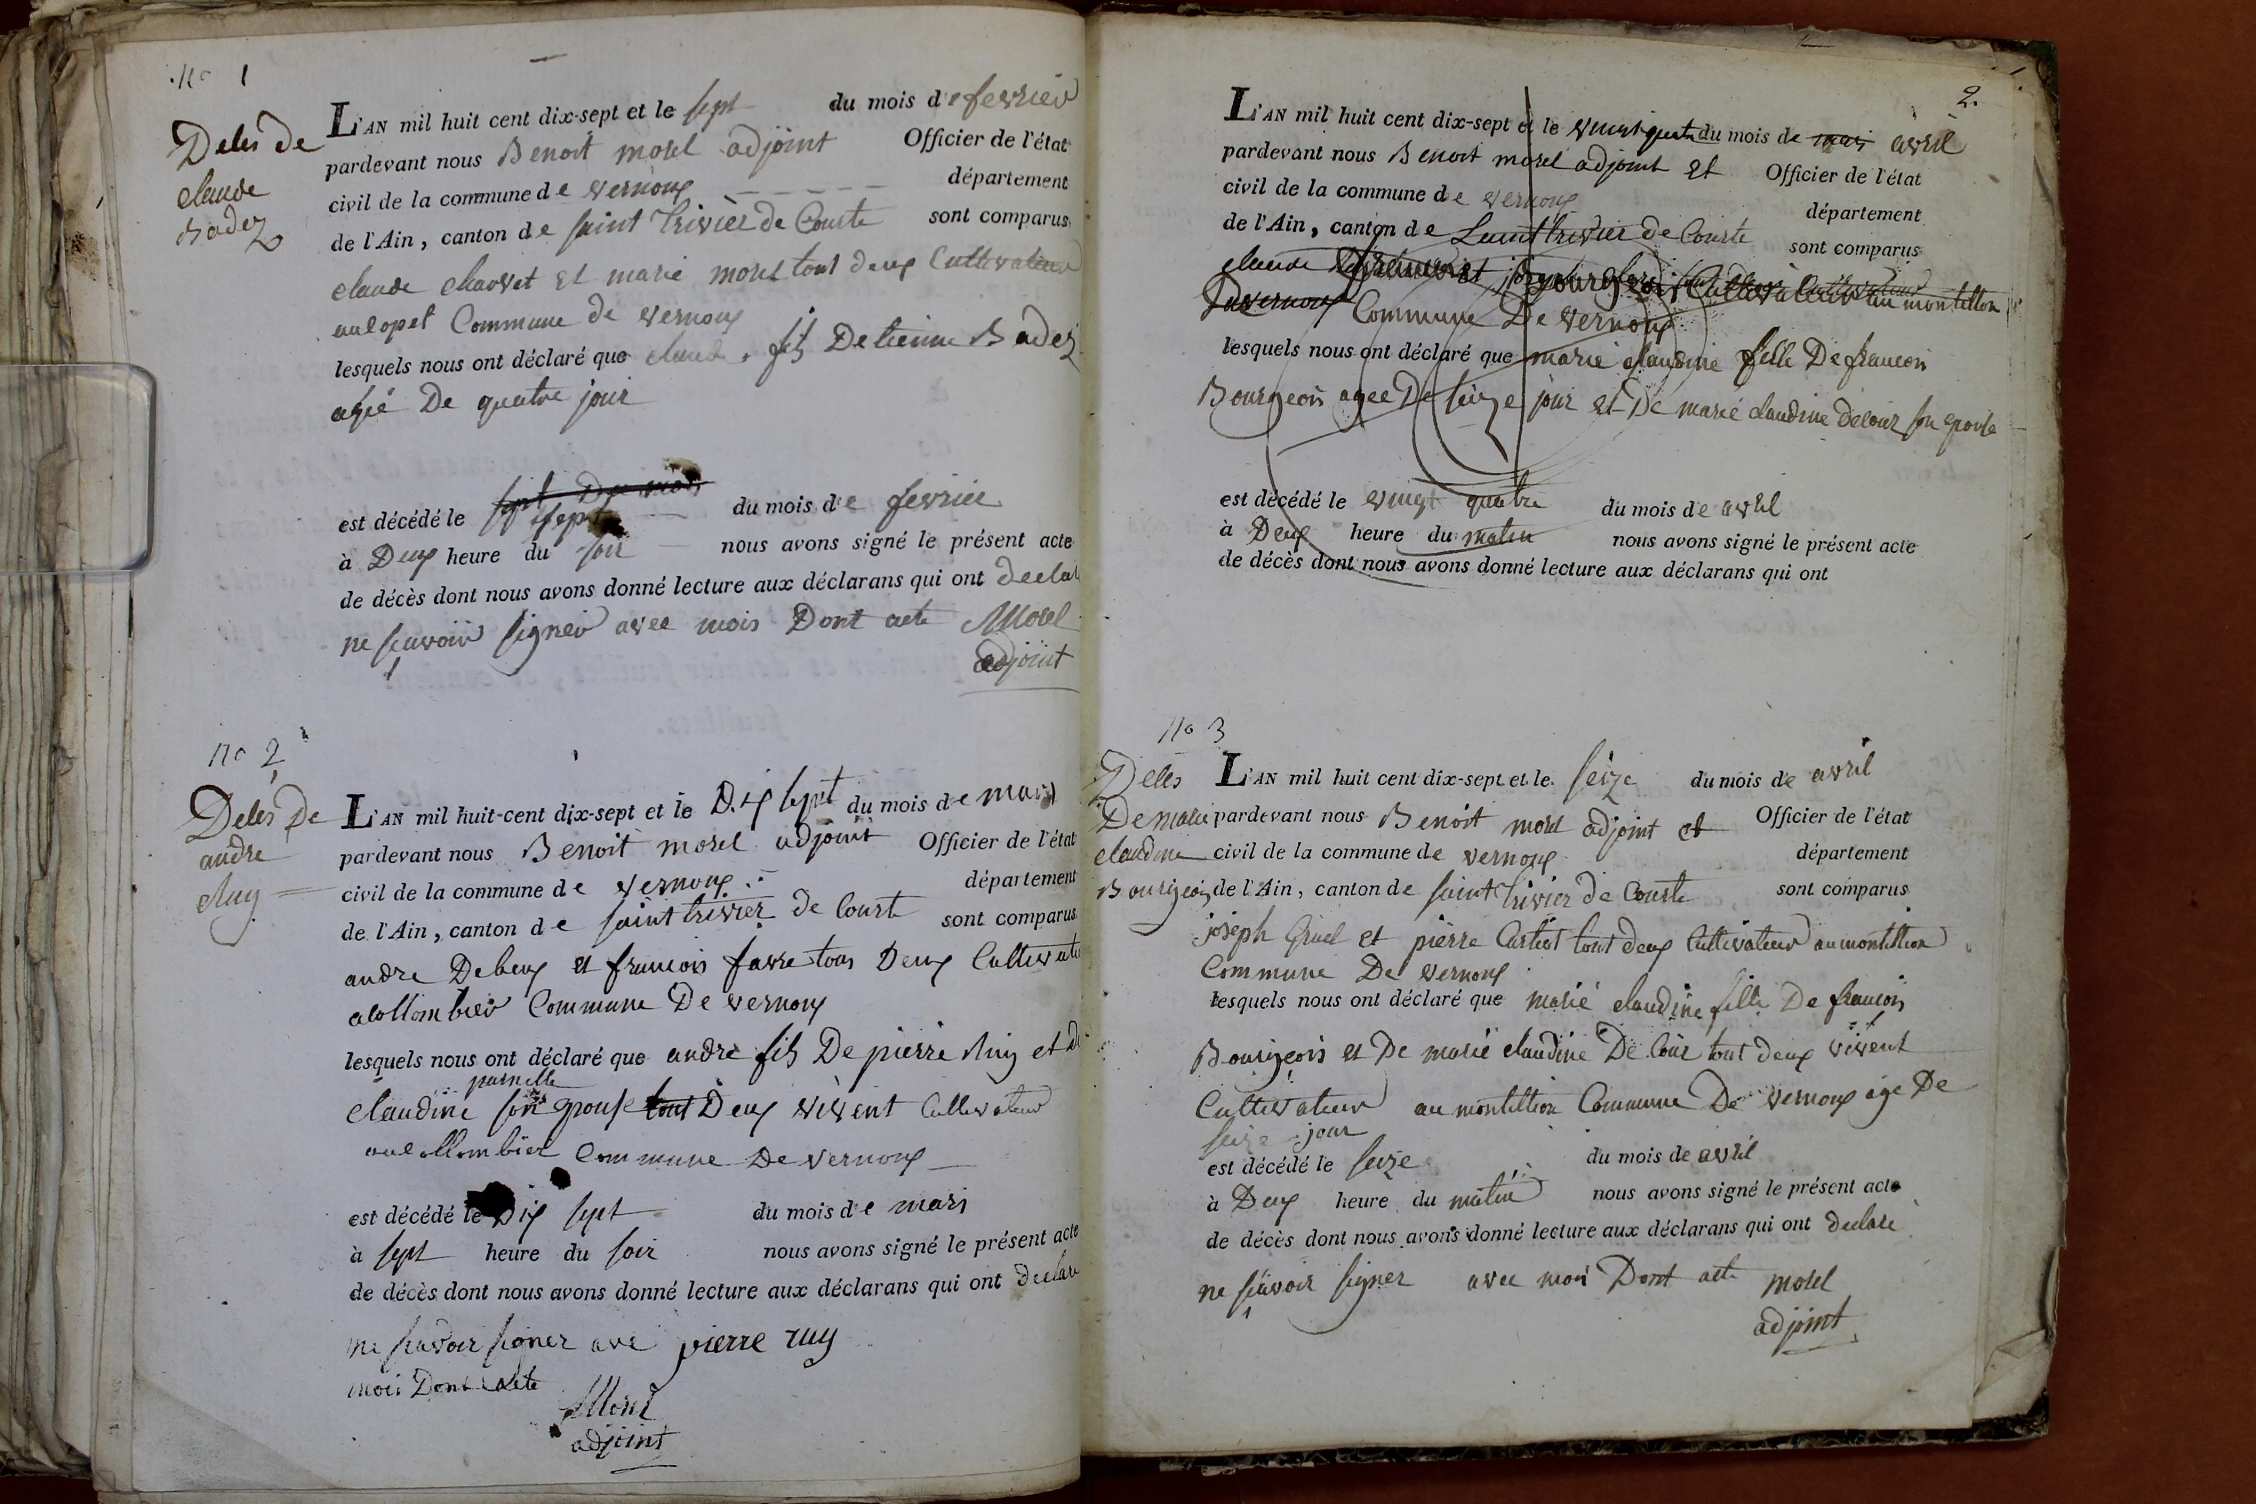 no 1
Deles de
claude
Badez
L'AN mil huit cent dix-sept et le sept du mois de fevrier
pardevant nous Benoit morel adjoint Officier de l'état
civil de la commune de vernoux département
de l'Ain, canton de saint trivier de Courte sont comparus
claude charvet et marie morel tout deux Cultivateur
aulopet Commune de vernoux
lesquels nous ont déclaré que claude fils Detienne Badez
agé De quatre jour
est décédé le sept Du mois sept du mois de fevrier
à Deux heure du soir nous avons signé le présent acte
de décès dont nous avons donné lecture aux déclarans qui ont declar
ne scavoir signer avec mois Dont acte Morel
adjoint
no 2
Deles De
andre
Ruy
L'AN mil huit-cent dix-sept et le Dix sept du mois de mars
pardevant nous Benoit morel adjoint Officier de l'état
civil de la commune de vernoux département
de l'Ain, canton de saint trivier de Courte sont comparus
andre Debeux et francois favre tous Deux Cultivateu
alollombier Commune De vernoux
lesquels nous ont déclaré que andre fils De pierre Ruy et de
claudine parnelle son epouse tout Deux vivent Cultivateur
au collombier Commune De vernoux
est décédé le Dix sept du mois de mars
à sept heure du soir nous avons signé le présent acte
de décès dont nous avons donné lecture aux déclarans qui ont declare
ne scavoir signer ave pierre ruy
moi Dont acte
Morel
adjoint
2.
L'AN mil huit cent dix-sept et le vingt quatre du mois de mars avril
pardevant nous Benoit morel adjoint et Officier de l'état
civil de la commune de vernoux département
de l'Ain, canton de Saint trivier de Courte sont comparus
claude Cultivateur au montillon
Commune De vernoux
lesquels nous ont déclaré que marie claudine fille De francois
Bourgeois agee De seize jour et De marie claudine Decour son epouse
est décédé le vingt quatre du mois de avril
à Deux heure du matin nous avons signé le présent acte
de décès dont nous avons donné lecture aux déclarans qui ont
no 3
Deles
De marie
claudine
Bourgeois
L'AN mil huit cent dix-sept et le seize du mois de avril
pardevant nous Benoit morel adjoint et Officier de l'état
civil de la commune de vernoux département
de l'Ain, canton de saint trivier de Courte sont comparus
joseph Gruel et pierre tout deux Cultivateur au montillion
Commune De vernoux
lesquels nous ont déclaré que marie claudine fille De francois
Bourgeois et De marie claudine De Cour tout deux vivent
Cultivateur au montillion Commune De vernoux age De
seize jour
est décédé le seize du mois de avril
à Deux heure du matin nous avons signé le présent acte
de décès dont nous avons donné lecture aux déclarans qui ont declare
ne scavoir signer avec moi Dont acte morel
adjoint